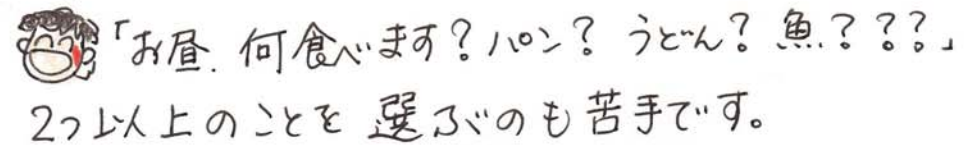 「お昼、何食べます？パン？ うどん？ 魚？？？」
2つ以上のことを選ぶのも苦手です。